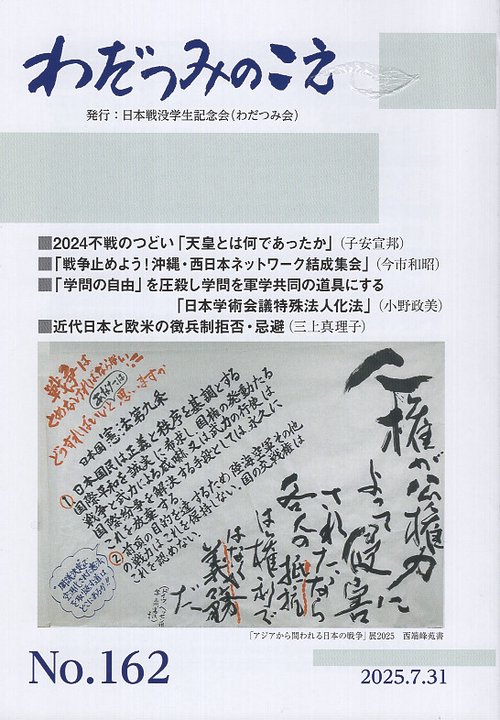 わだつみのこえ
発行：日本戦没学生記念会（わだつみ会）
■2024不戦のつどい「天皇とは何であったか」（子安宣邦）
■「戦争止めよう！沖縄・西日本ネットワーク結成集会」（今市和昭）
■「学問の自由」を圧殺し学問を軍学共同の道具にする
「日本学術会議特殊法人化法」（小野政美）
■近代日本と欧米の徴兵制拒否・忌避（三上真理子）
人権が公権力に
よって侵害
されたなら
各人の抵抗
は権利で
はなく
義務
だ
戦争は
とめなければならない!!!
あなたは
どうすればいいと思いますか
日本国憲法第九条
①日本国民は正義と秩序を基調とする
国際平和を誠実に希求し、国権の発動たる
戦争と武力による威嚇又は武力の行使は
国際紛争を解決する手段としては永久に
これを放棄する。
②前項の目的を達するため陸海空軍その他
の戦力はこれを保持しない。国の交戦権は
これを認めない。
「アジアから問われる日本の戦争」展2025　西端峰苑書
No.162
2025.7.31